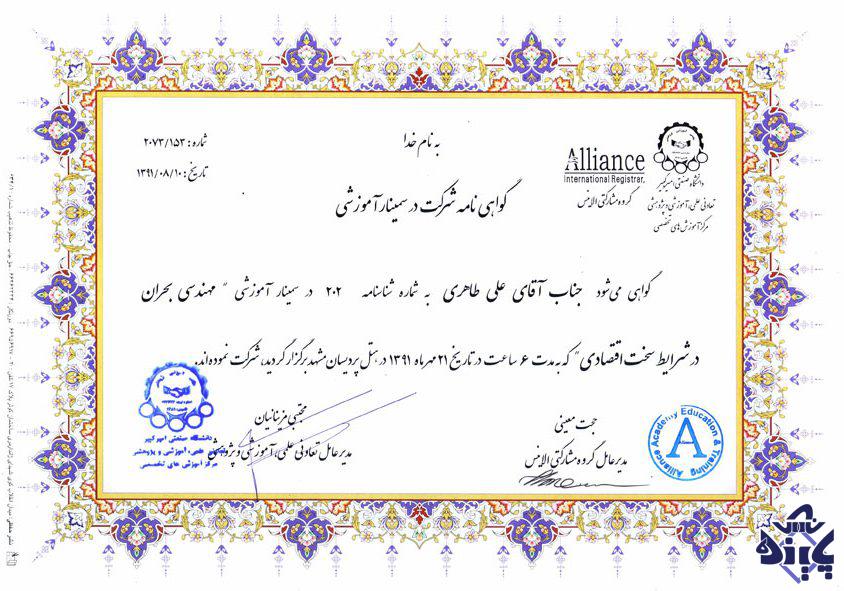 به نام خدا
شماره: ۲۰۷۳/۱۵۳
تاریخ: ۱۳۹۱/۰۸/۱۰
Alliance
International Registrar.
گروه مشارکتی الاینس
دانشگاه صنعتی امیرکبیر
تعاونی علمی، آموزشی و پژوهشی
مرکز آموزش های تخصصی
گواهی نامه شرکت در سمینار آموزشی
گواهی می شود جناب آقای علی طاهری به شماره شناسنامه ۲۰۲ در سمینار آموزشی " مهندسی بحران
در شرایط سخت اقتصادی" که به مدت ۶ ساعت در تاریخ ۲۱ مهرماه ۱۳۹۱ در هتل پردیسان مشهد برگزار گردید، شرکت نموده اند.
حجت معینی
مدیرعامل گروه مشارکتی الاینس
مجتبی مزینانیان
مدیرعامل تعاونی علمی، آموزشی و پژوهشی
Alliance Academy Education & Training
A
دانشگاه صنعتی امیرکبیر
علمی، آموزشی و پژوهشی
مرکز آموزش های تخصصی